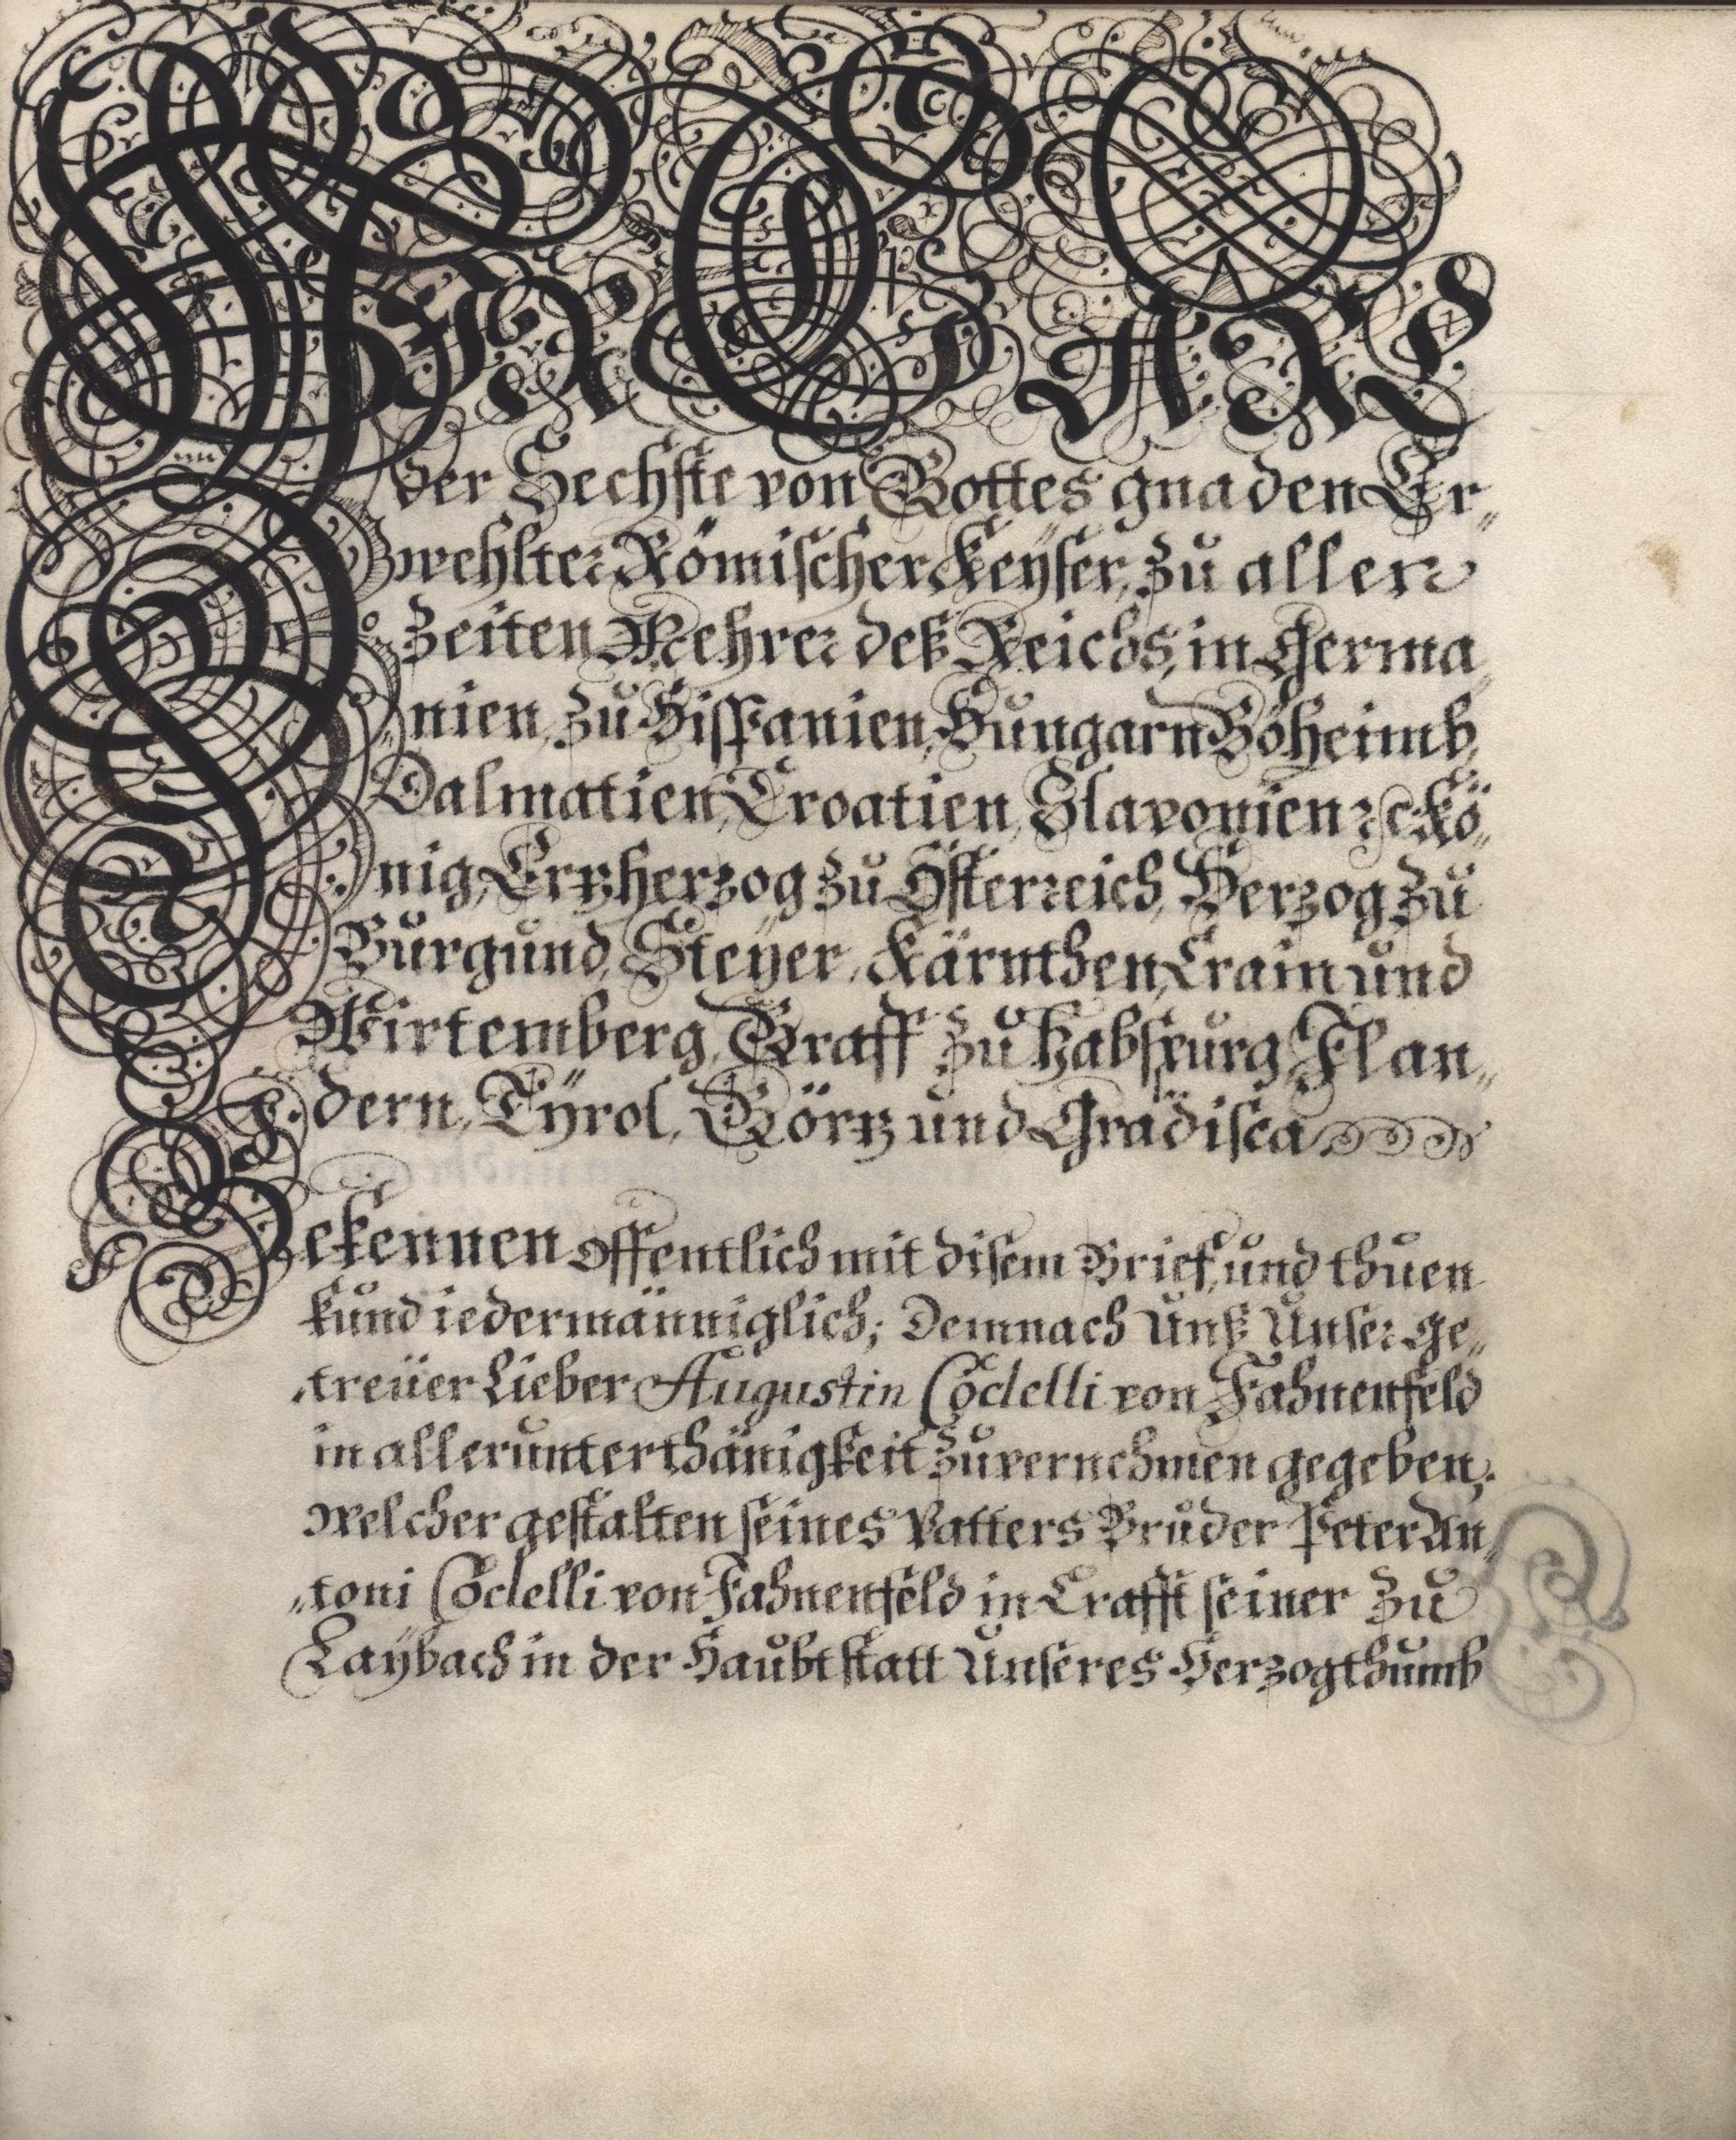 WIR CARL
der Sechste von Gottes gnaden Er„
wehlter Römischer Keÿser, zu aller
Zeiten Mehrer deß Reichs, in Germa„
„nien, zu Hispanien, Hungarn, Böheimb,
Dalmatien, Croatien, Slavonien ꝛc. Kö„
nig, Ertzherzog zu Österreich, Herzog zu
Burgund, Steÿer, Kärnthen, Crain und
Wirtemberg, Graff zu Habspurg, Flan„
dern, Tÿrol, Görtz und Gradisca
Bekennen offentlich mit disem Brief, und thuen
kund iedermänniglich; Demnach Unß Unser ge„
„treüer Lieber Augustin Codelli von Fahnenfeld
in allerunterthänigkeit zuvernehmen gegeben,
welcher gestalten seines Vatters Bruder Peter An„
„toni Codelli von Fahnenfeld in Crafft seiner zu
Laÿbach in der Haubtstatt Unseres Herzogthumb